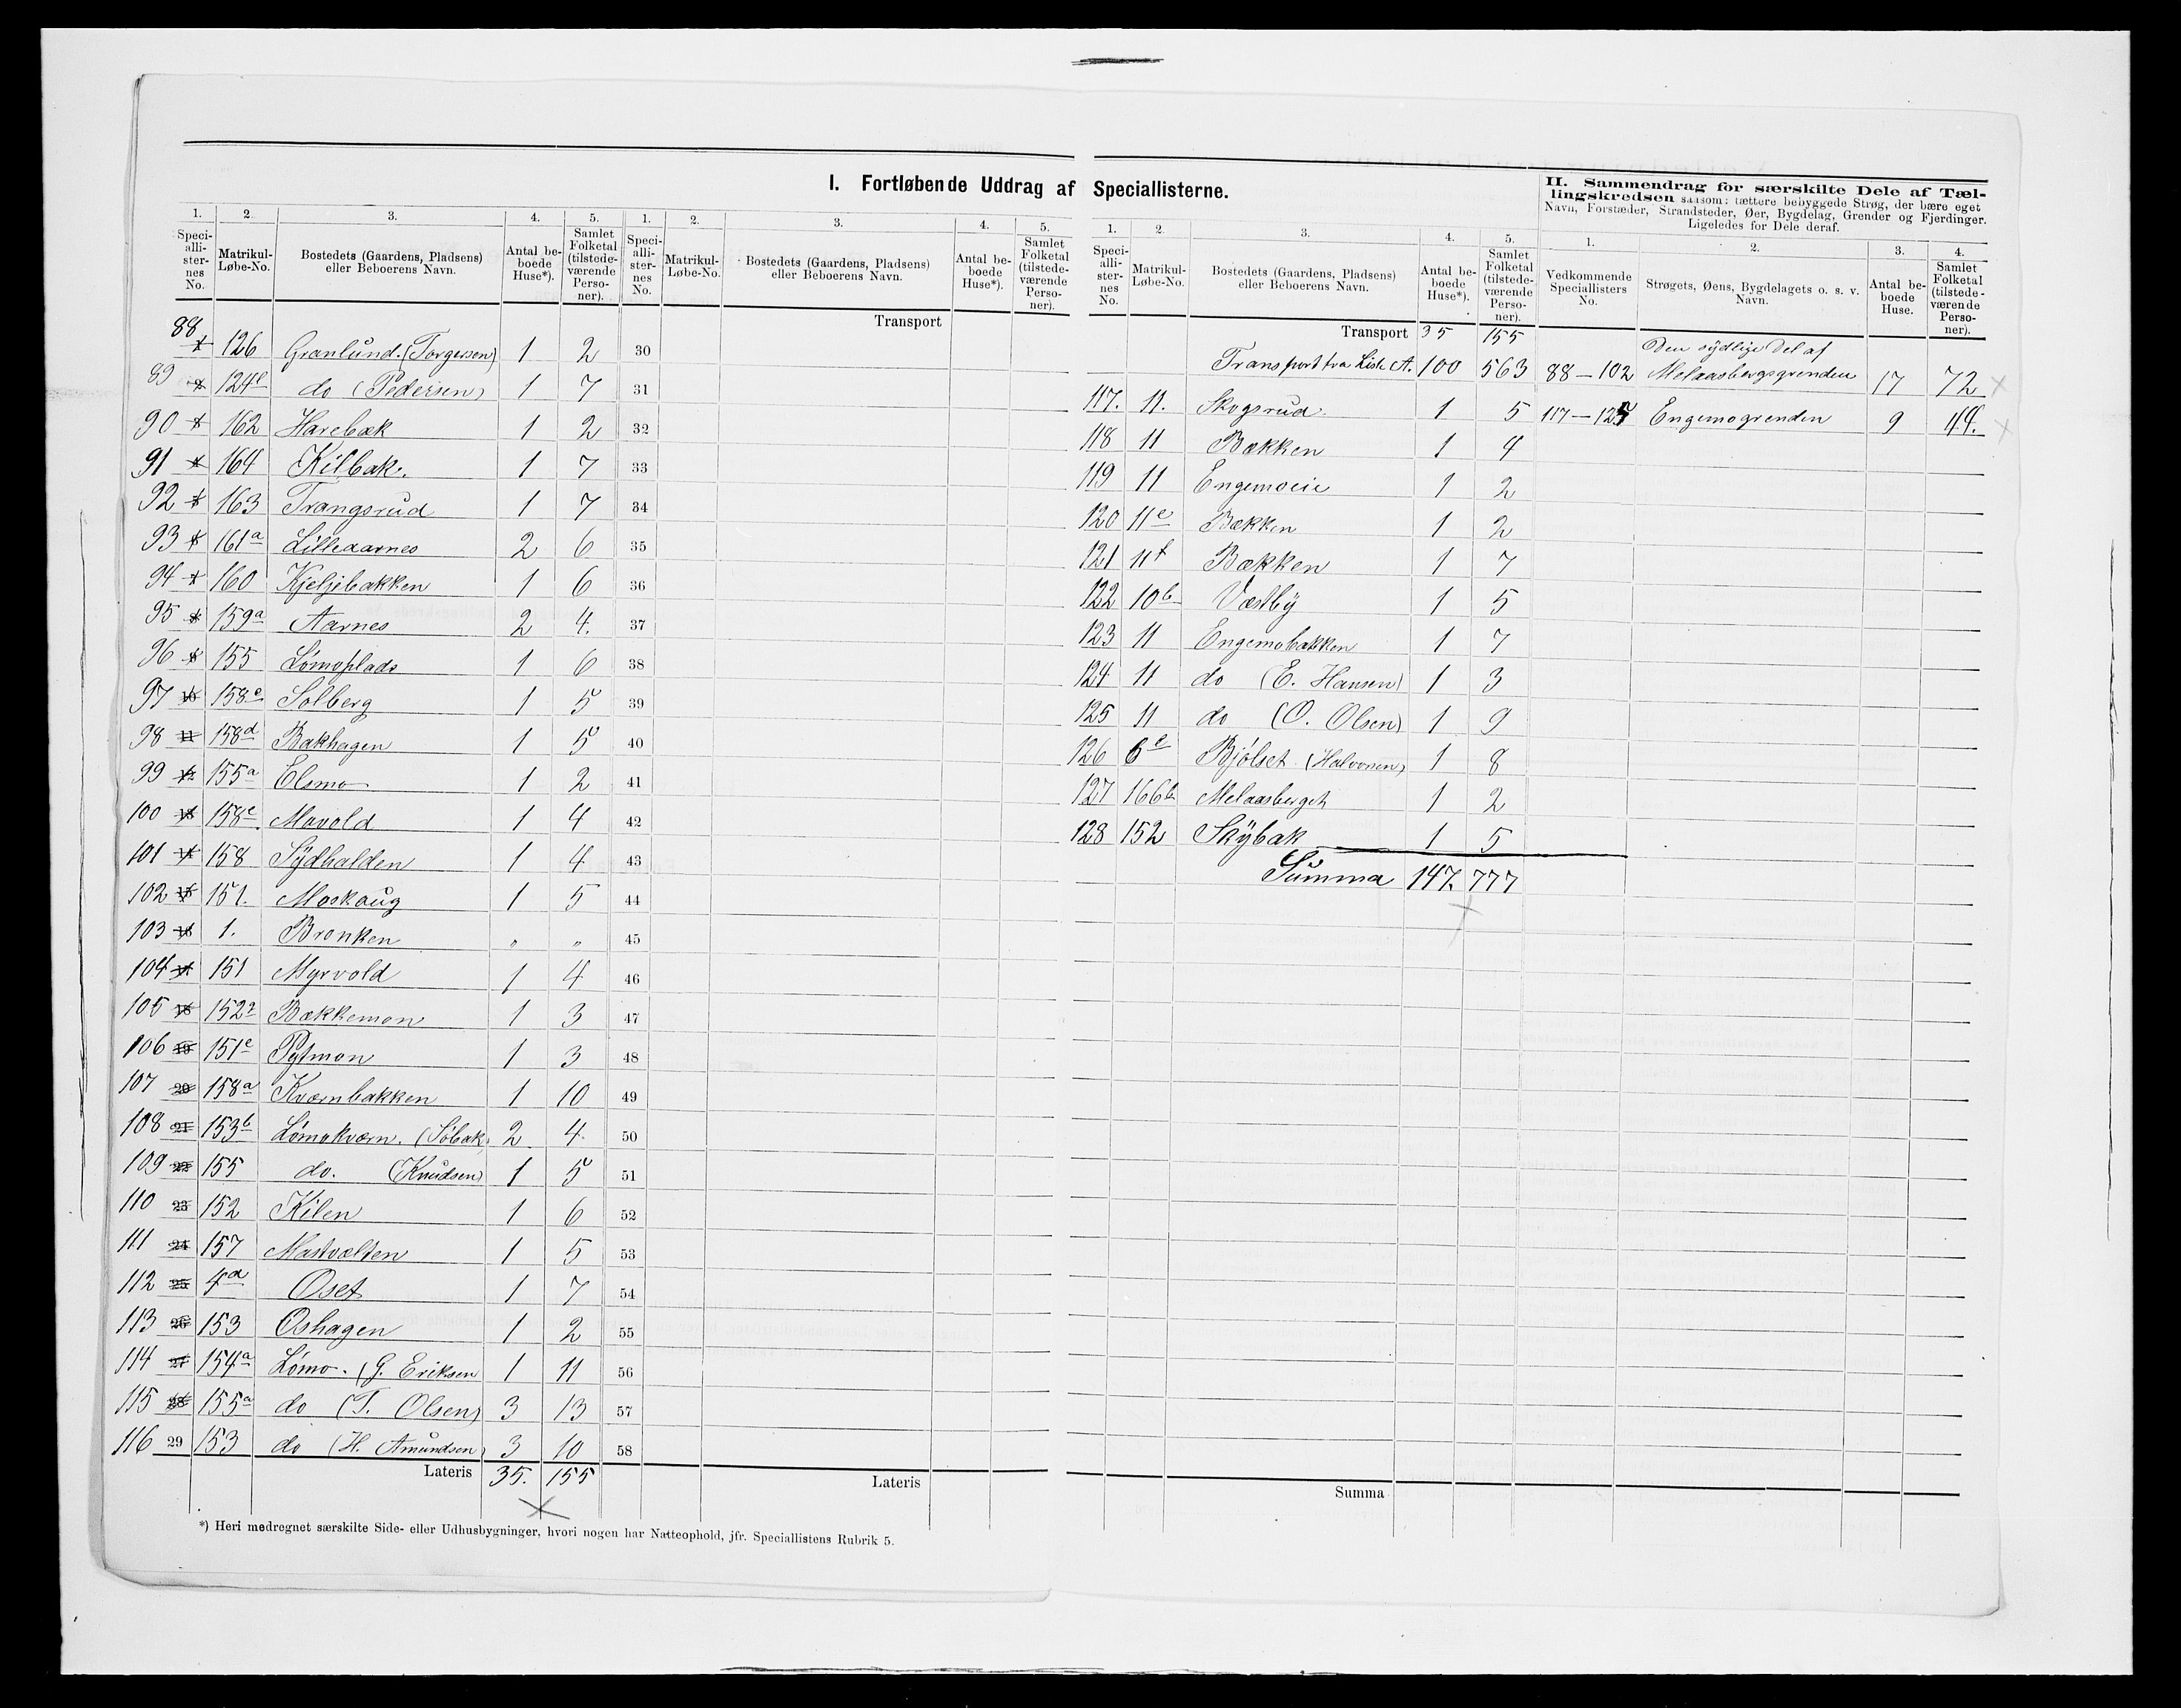 I. Fortløbende Uddrag af Speciallisterne.
1. 2. 3. 4. 5. 1. 2. 3. 4. 5.
Speciallisternes No. Matrikul-Løbe-No. Bostedets (Gaardens, Pladsens) eller Beboerens Navn. Antal beboede Huse*). Samlet Folketal (tilstedeværende Personer). Speciallisternes No. Matrikul-Løbe-No. Bostedets (Gaardens, Pladsens) eller Beboerens Navn. Antal beboede Huse*). Samlet Folketal (tilstedeværende Personer).
Transport
88 126 Granlund. (Torgersen) 1 2 30
89 124e do (Pedersen) 1 7 31
90 162 Harebæk 1 2 32
91 164 Kilbak. 1 7 33
92 163 Trangsrud 1 7 34
93 161a Lilleaarnes 2 6 35
94 160 Kjeljebakken 1 6 36
95 159a Aarnes 2 4. 37
96 155 Lömoplads 1 6 38
97 158e Solberg 1 5 39
98 158d Bakhagen 1 5 40
99 155a Elsmo 1 2 41
100 158c Movold 1 4 42
101 158 Sydhalden 1 4 43
102 151. Moskaug 1 5 44
103 1. Bronken " " 45
104 151 Myrvold 1 4 46
105 152a Bækkemon 1 3 47
106 151e Pytmon 1 3 48
107 158a Kværnbakken 1 10 49
108 153b Lömokværn. (Söbak) 2 4 50
109 155 do. (Knudsen) 1 5 51
110 23 152 Kilen 1 6 52
111 24 157 Mastvælten 1 5 53
112 25 4d Oset 1 7 54
113 26 153 Oshagen 1 2 55
114 27 154a Lömo. (G. Eriksen 1 11 56
115 28 155a do (T. Olsen) 3 13 57
116 29 153 do (H. Amundsen) 3 10 58
Lateris 35. 155 Lateris
*) Heri medregnet særskilte Side- eller Udhusbygninger, hvori nogen har Natteophold, jfr. Speciallistens Rubrik 5.
1. 2. 3. 4. 5.
Speciallisternes No. Matrikul-Løbe-No. Bostedets (Gaardens, Pladsens) eller Beboerens Navn. Antal beboede Huse*). Samlet Folketal (tilstedeværende Personer).
Transport 35 155
Transport fra Liste A. 100 563
117. 11. Skogsrud. 1 5
118 11 Bækken 1 4
119 11 Engemoeie 1 2
120 11e Bækken 1 2
121 11f Bækken 1 7
122 10b Væstby 1 5
123 11 Engemobakken 1 7
124 11 do (E. Hansen) 1 3
125 11 do (O. Olsen) 1 9
126 6e Bjölset (Halvorsen) 1 8
127 166b Melaasberget 1 2
128 152 Skybak 1 5
Summa 147. 777
Summa
II. Sammendrag for særskilte Dele af Tællingskredsen saasom: tættere bebyggede Strøg, der bære eget
Navn, Forstæder, Strandsteder, Øer, Bygdelag, Grender og Fjerdinger.
Ligeledes for Dele deraf.
1. 2. 3. 4.
Vedkommende Speciallisters No. Strøgets, Øens, Bygdelagets o. s. v. Navn. Antal beboede Huse. Samlet Folketal (tilstedeværende Personer).
Den sydlige Del af
88-102 Melaasbergsgrenden 17 72
117-125 Engemogrenden 9 44.